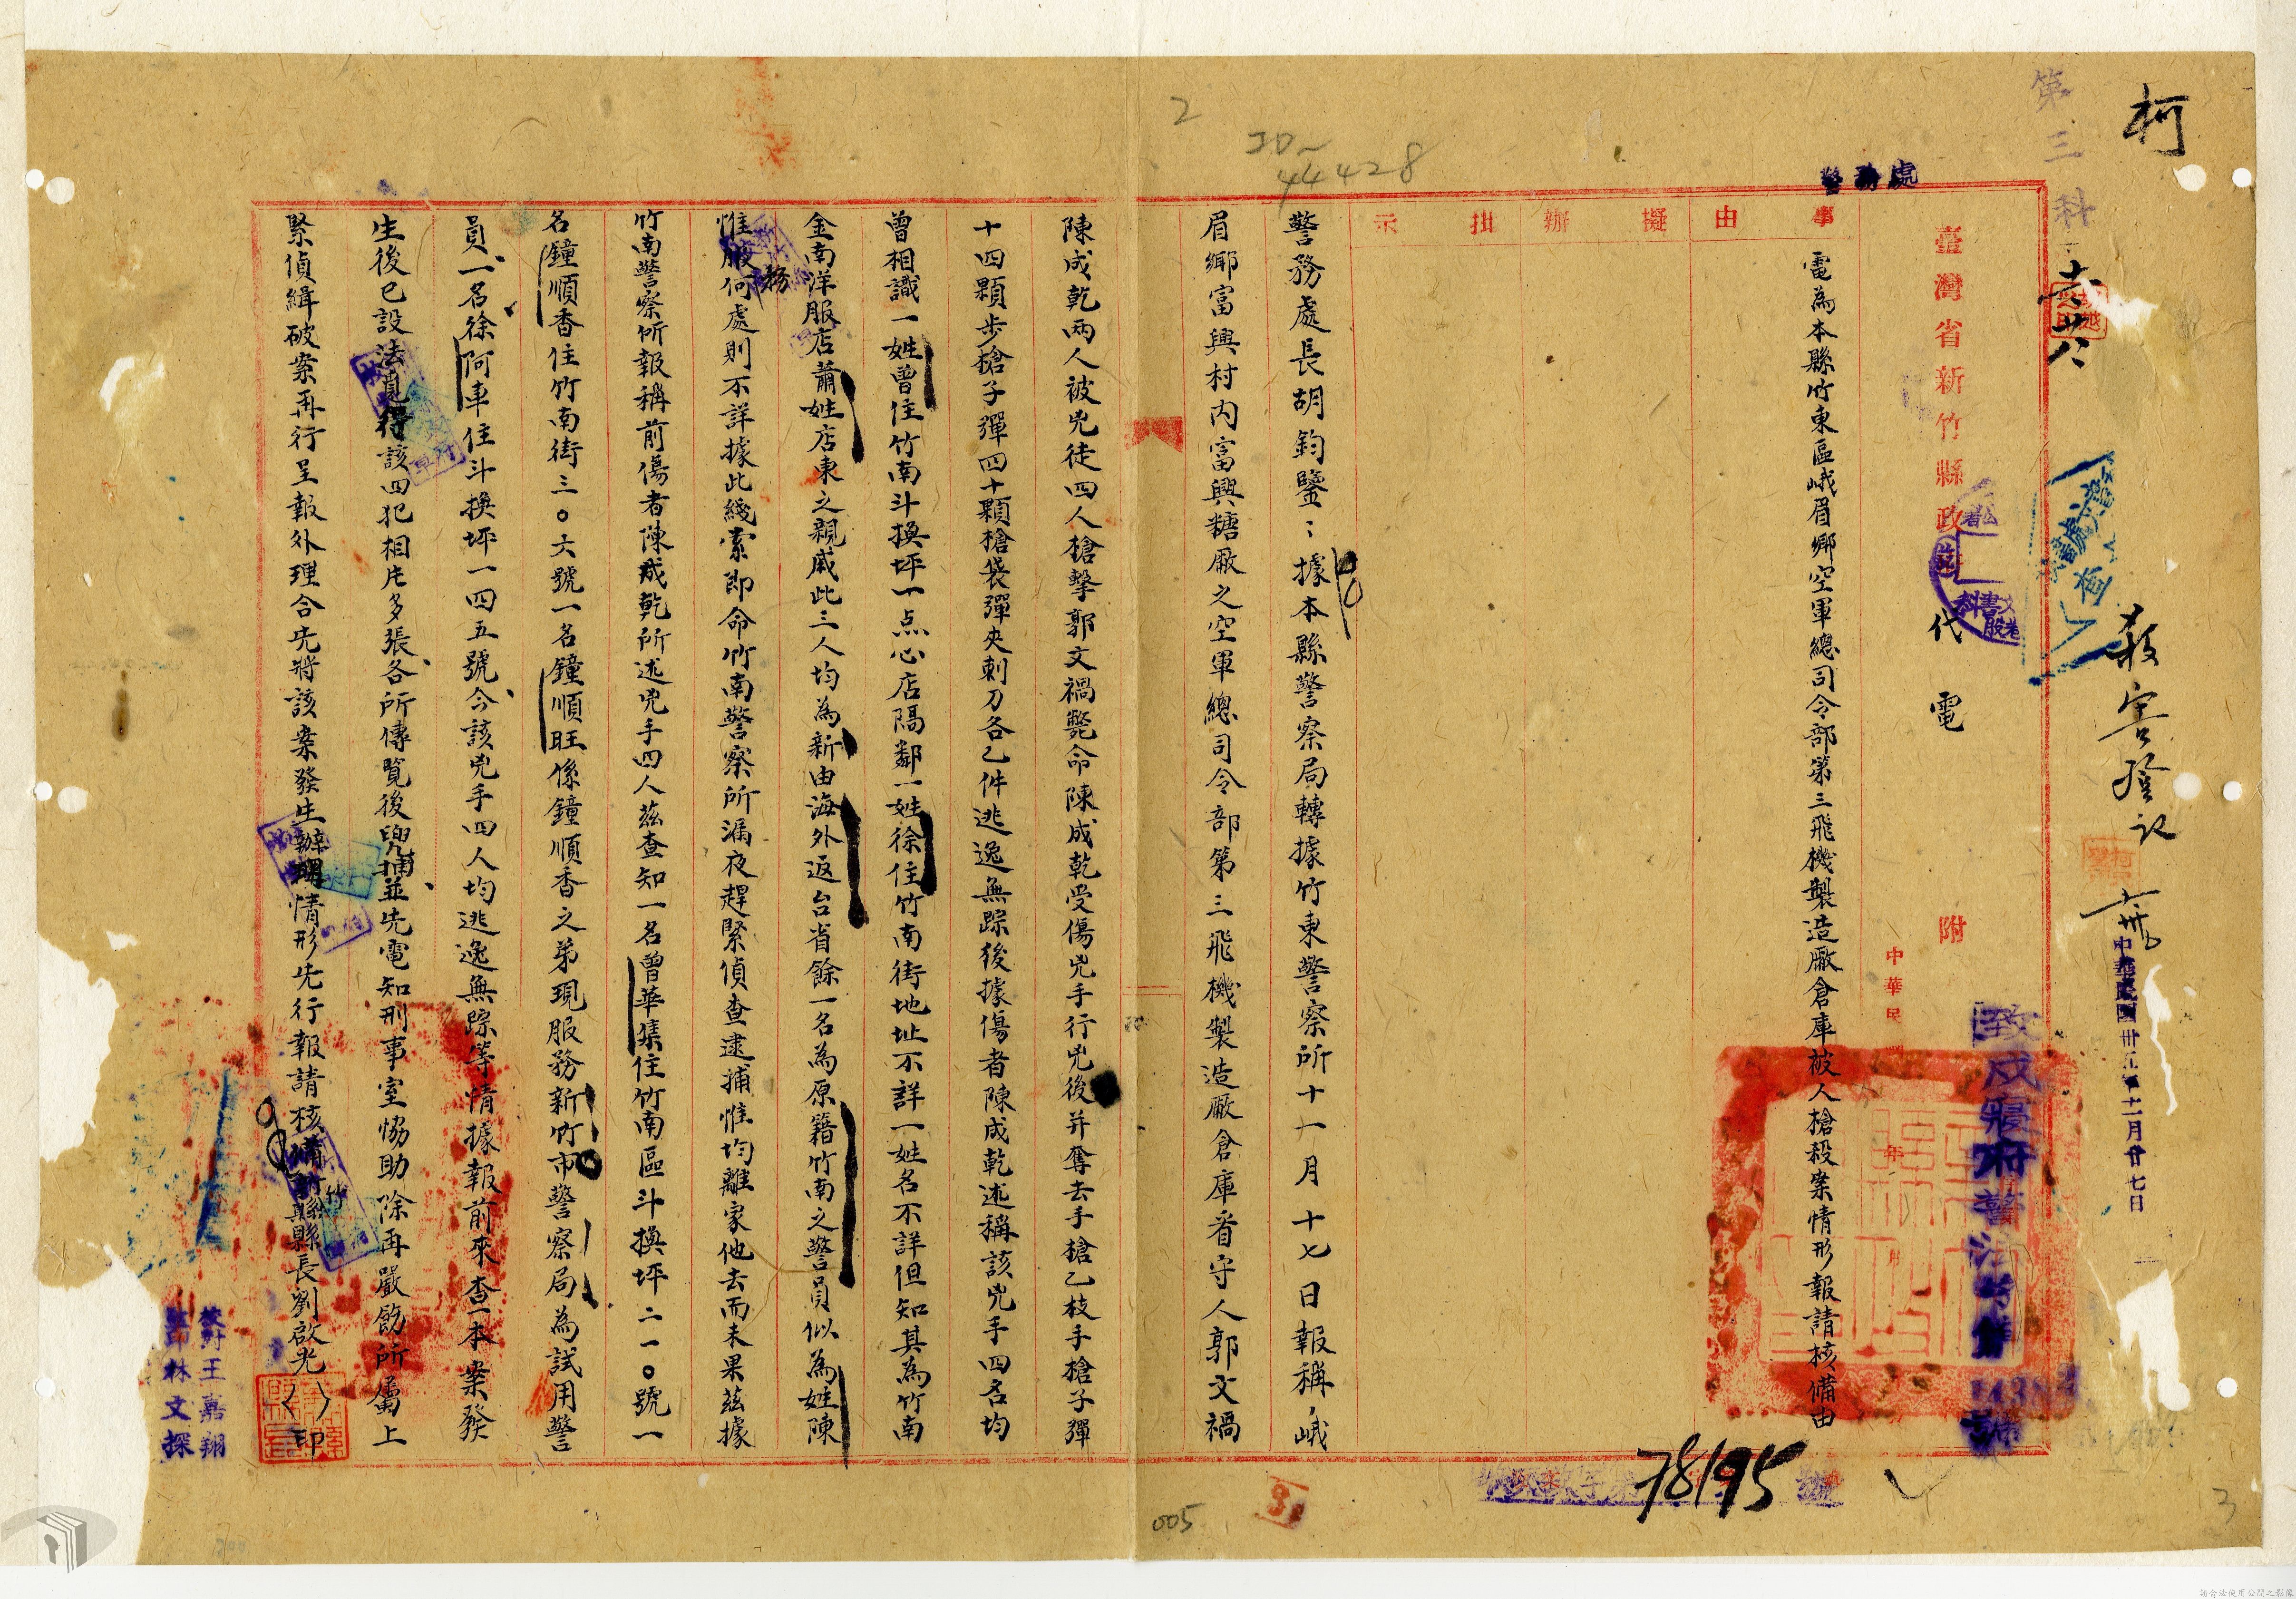 柯
第三科
殺害登記
中華民國卅五年十一月廿七日
警務處
臺灣省新竹縣政府
代電
附
中華民國 年 月
致戌寢府警治字第
號
事由
擬辦
批示
電為本縣竹東區峨眉鄉空軍總司令部第三飛機製造廠倉庫被人槍殺案情形報請核備由
警務處長胡鈞鑒：據本縣警察局轉據竹東警察所十一月十七日報稱，峨
眉鄉富興村內富興糖廠之空軍總司令部第三飛機製造廠倉庫看守人郭文禍
陳成乾兩人被兇徒四人槍擊郭文禍斃命陳成乾受傷兇手行兇後并奪去手槍乙枝手槍子彈
十四顆步槍子彈四十顆槍袋彈夾刺刀各乙件逃逸無踪後據傷者陳成乾述稱該兇手四名均
曾相識一姓曾住竹南斗換坪一点心店隔鄰一姓徐住竹南街地址不詳一姓名不詳但知其為竹南
金南洋服店蕭姓店東之親戚此三人均為新由海外返台省餘一名為原籍竹南之警員似為姓陳
惟服務何處則不詳據此綫索即命竹南警察所漏夜趕緊偵查逮捕惟均離家他去而未果茲據
竹南警察所報稱前傷者陳成乾所述兇手四人茲查知一名曾華集住竹南區斗換坪二一〇號一
名鐘順香住竹南街三〇六號一名鐘順旺係鐘順香之弟現服務新竹市警察局為試用警
員、一名徐阿車住斗換坪一四五號、今該兇手四人均逃逸無踪等情據報前來查本案發
生後已設法覓得該四犯相片多張、各所傳覧後兜捕、並先電知刑事室協助除再嚴飭所屬上
緊偵緝破案再行呈報外理合先將該案發生辦理情形先行報請核備新竹縣縣長劉啟光（印）
校對王嘉翔
監印林文探
78195
號
2
44428
005
3